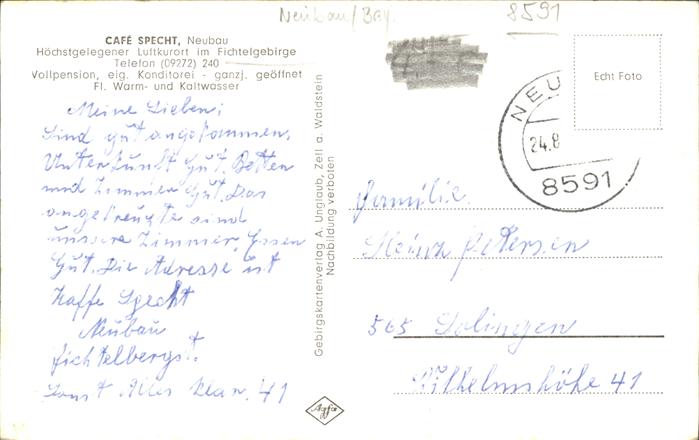 Neubau/Bay.
8591
CAFÉ SPECHT, Neubau
Höchstgelegener Luftkurort im Fichtelgebirge
Telefon (09272) 240
Vollpension, eig. Konditorei - ganzj. geöffnet
Fl. Warm- und Kaltwasser
Meine Lieben;
Sind gut angekommen.
Unterkunft Gut. Betten
und Zimmer Gut. Das
angekreuzte sind
unsere Zimmer, Essen
Gut. Die Adresse ist
Kaffe Specht
Neubau
Fichtelbergst.
Sonst Alles klar. 41
Gebirgskartenverlag A. Unglaub, Zell a. Waldstein
Nachbildung verboten
Echt Foto
NEU
24.8
8591
Familie
Heinz Petersen
565 Solingen
Wilhelmshöhe 41
Agfa